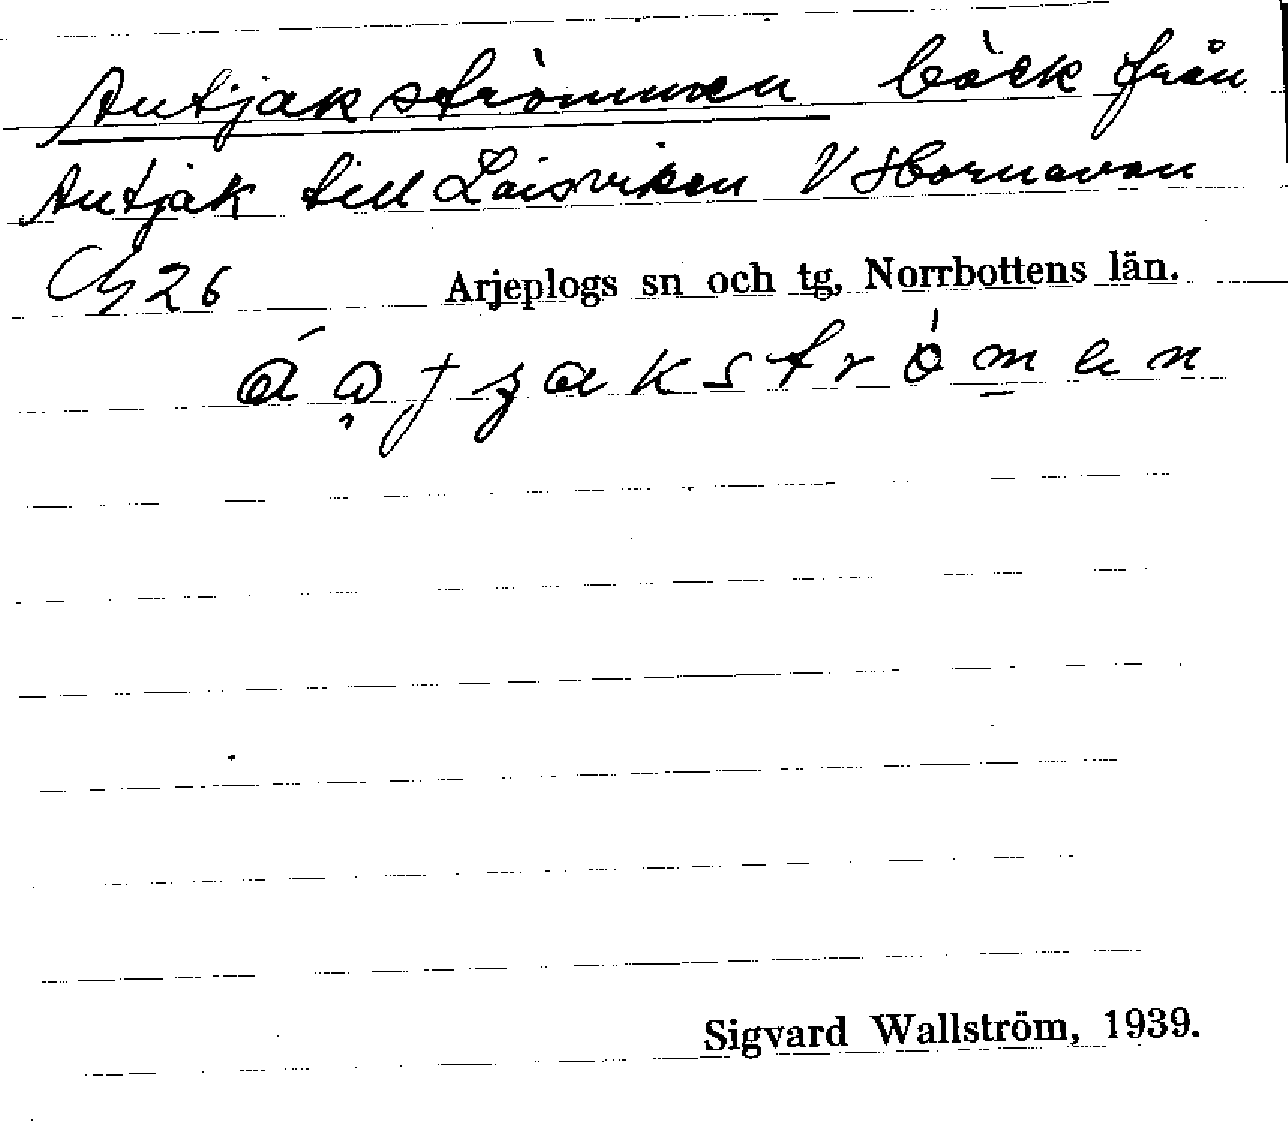 Autjakströmmen bäck från
Autjak till Laisviken V Hornavan
26 Arjeplogs sn och tg, Norrbottens län.
Sigvard Wallström, 1939.